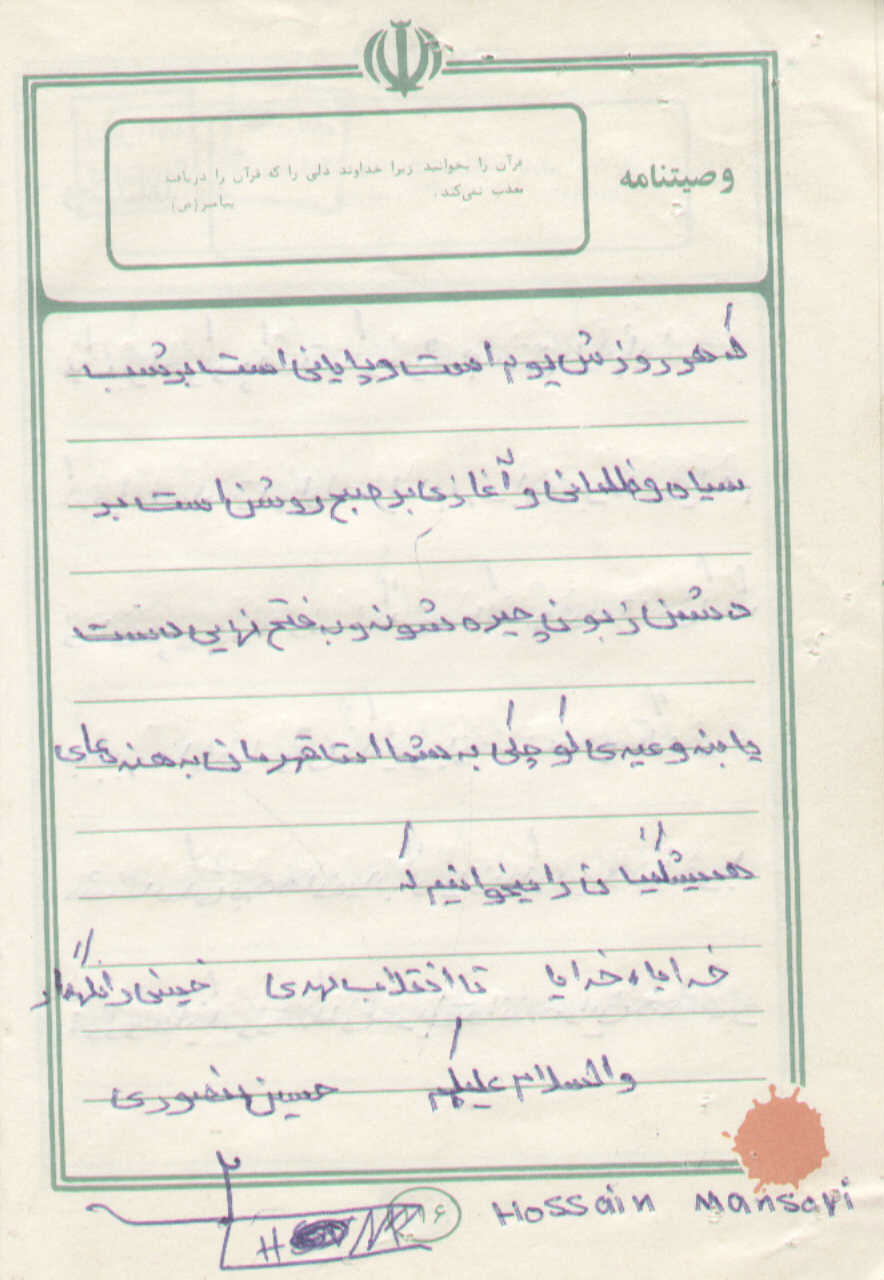 وصیتنامه
قرآن را بخوانید زیرا خداوند دلی را که قرآن را دریافت
معذب نمی‌کند.
پیامبر (ص)
که هر روزش یوم است و پایانی است بر شب
سیاه و ظلمانی و آغازی بر صبح روشن است بر
دشمن زبون چیره شوند و به فتح نهایی دست
یابند وعیدی کوچکی به شما امت قهرمان به
همیشگیتان را میخوانیم که
خدایا، خدایا تا انقلاب مهدی خمینی را نگهدار
والسلام علیکم حسین منصوری
۱۶
Hossain Mansori